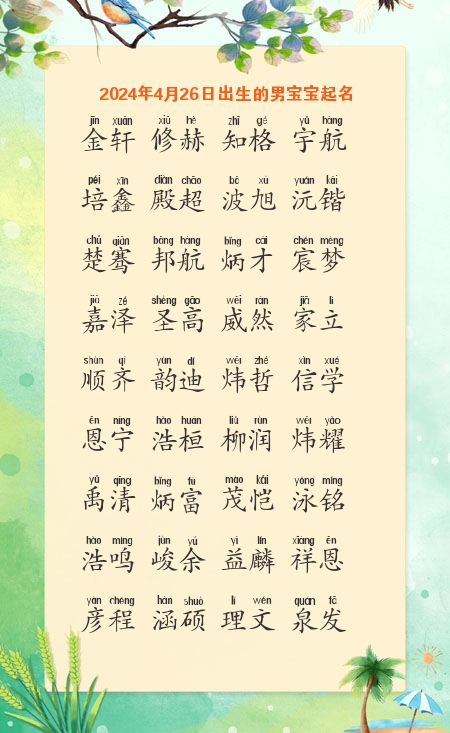 2024年4月26日出生的男宝宝起名
jīn xuān xiū hè zhī gé yǔ háng
金轩 修赫 知格 宇航
péi xīn diàn chāo bō xù yuán kǎi
培鑫 殿超 波旭 沅锴
chǔ qiān bāng háng bǐng cái chén mèng
楚骞 邦航 炳才 宸梦
jiā zé shèng gāo wēi rán jiā lì
嘉泽 圣高 威然 家立
shùn qí yùn dí wěi zhé xìn xué
顺齐 韵迪 炜哲 信学
ēn níng hào huán liǔ rùn wěi yào
恩宁 浩桓 柳润 炜耀
yǔ qīng bǐng fù mào kǎi yǒng míng
禹清 炳富 茂恺 泳铭
hào míng jùn yú yì lín xiáng ēn
浩鸣 峻余 益麟 祥恩
yàn chéng hán shuò lǐ wén quán fā
彦程 涵硕 理文 泉发